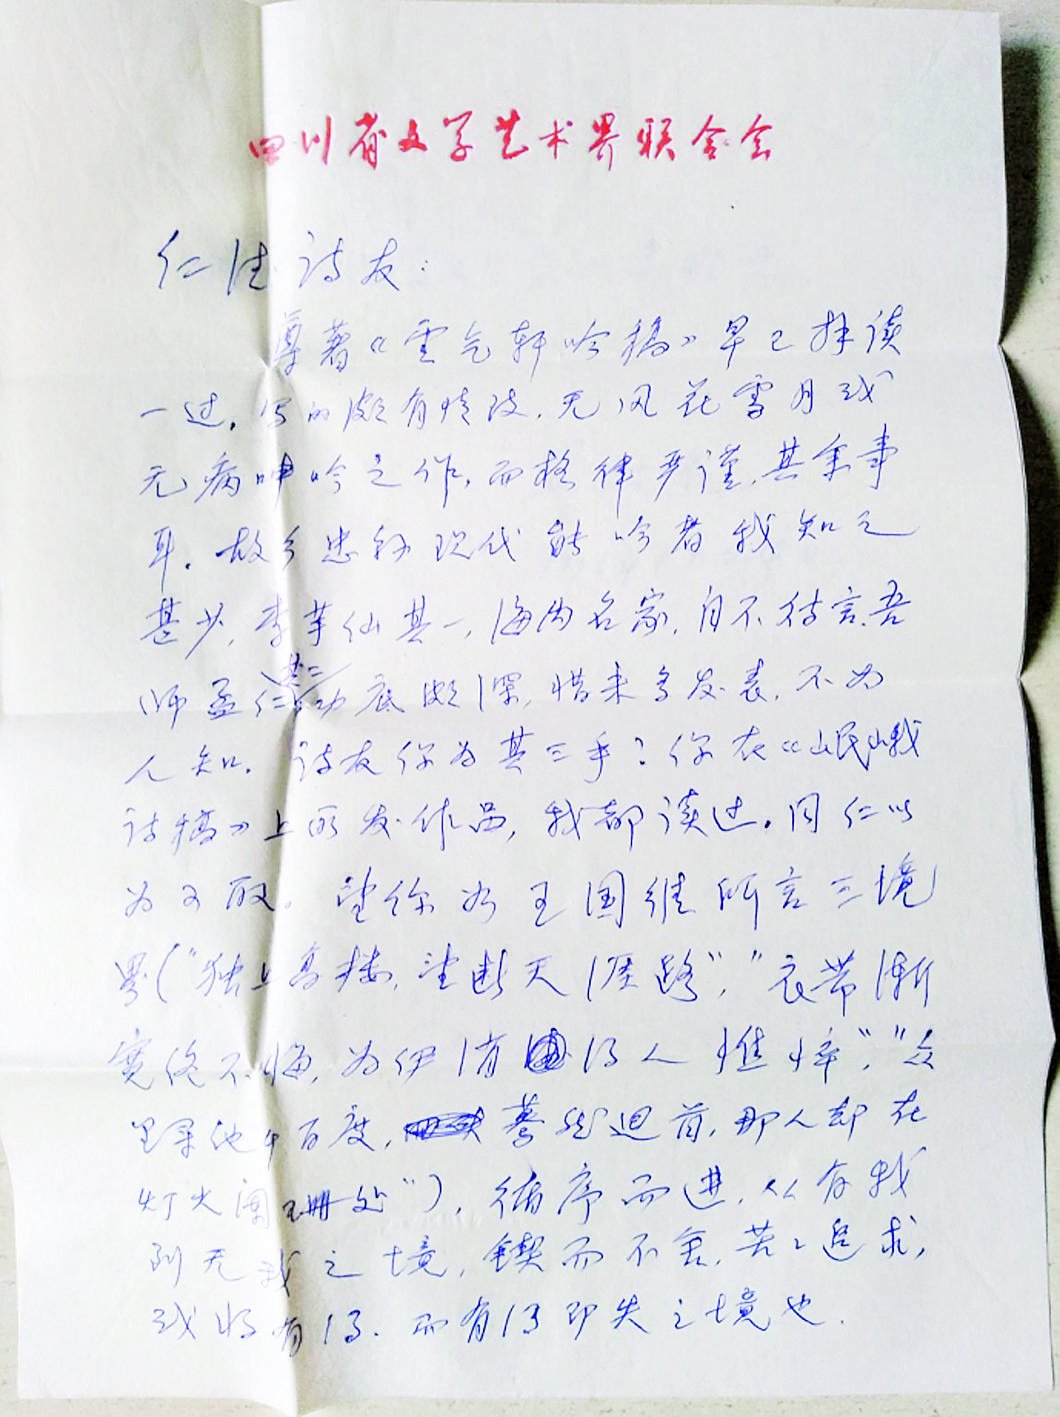 四川省文学艺术界联合会
仁德诗友：
尊著《云气轩吟稿》早已拜读
一过。写的颇有情致，无风花雪月或
无病呻吟之作，而格律严谨，其余事
耳。故乡忠州现代能吟者我知之
甚少，李芋仙其一，海内名家，自不待言，吾
师孟仁其二功底颇深，惜未多发表，不为
人知。诗友你为其三乎？你在《岷峨
诗稿》上所发作品，我都读过。同仁以
为可取。望你如王国维所言三境
界（“独上高楼，望断天涯路”，“衣带渐
宽终不悔，为伊消得人憔悴”，“众
里寻他千百度，蓦然迴首，那人却在
灯火阑珊处”），循序而进，从有我
到无我之境，锲而不舍，苦苦追求，
或将有得。而有得即失之境也。